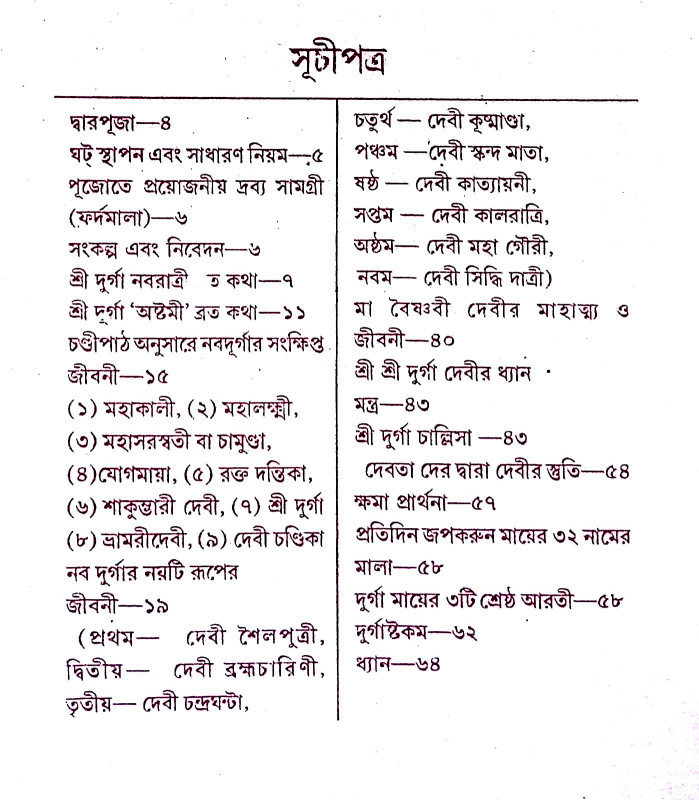 সূচীপত্র
দ্বারপূজা—৪
ঘট্ স্থাপন এবং সাধারণ নিয়ম—৫
পূজোতে প্রয়োজনীয় দ্রব্য সামগ্রী
(ফর্দমালা)—৬
সংকল্প এবং নিবেদন—৬
শ্রী দুর্গা নবরাত্রী ত কথা—৭
শ্রী দূর্গা ‘অষ্টমী’ ব্রত কথা—১১
চণ্ডীপাঠ অনুসারে নবদূর্গার সংক্ষিপ্ত
জীবনী—১৫
(১) মহাকালী, (২) মহালক্ষ্মী,
(৩) মহাসরস্বতী বা চামুণ্ডা,
(৪)যোগমায়া, (৫) রক্ত দন্তিকা,
(৬) শাকুম্ভারী দেবী, (৭) শ্রী দুর্গা
(৮) ভ্রামরীদেবী, (৯) দেবী চণ্ডিকা
নব দুর্গার নয়টি রূপের
জীবনী—১৯
(প্রথম— দেবী শৈলপুত্রী,
দ্বিতীয়— দেবী ব্রহ্মচারিণী,
তৃতীয়— দেবী চন্দ্রঘন্টা,
চতুর্থ — দেবী কূষ্মাণ্ডা,
পঞ্চম —দেবী স্কন্দ মাতা,
ষষ্ঠ — দেবী কাত্যায়নী,
সপ্তম — দেবী কালরাত্রি,
অষ্ঠম— দেবী মহা গৌরী,
নবম— দেবী সিদ্ধি দাত্রী)
মা বৈষ্ণবী দেবীর মাহাত্ম্য ও
জীবনী—৪০
শ্রী শ্রী দুর্গা দেবীর ধ্যান
মন্ত্র—৪৩
শ্রী দুর্গা চাল্লিসা —৪৩
দেবতা দের দ্বারা দেবীর স্তুতি—৫৪
ক্ষমা প্রার্থনা—৫৭
প্রতিদিন জপকরুন মায়ের ৩২ নামের
মালা—৫৮
দুর্গা মায়ের ৩টি শ্রেষ্ঠ আরতী—৫৮
দুর্গাষ্টকম—৬২
ধ্যান—৬৪